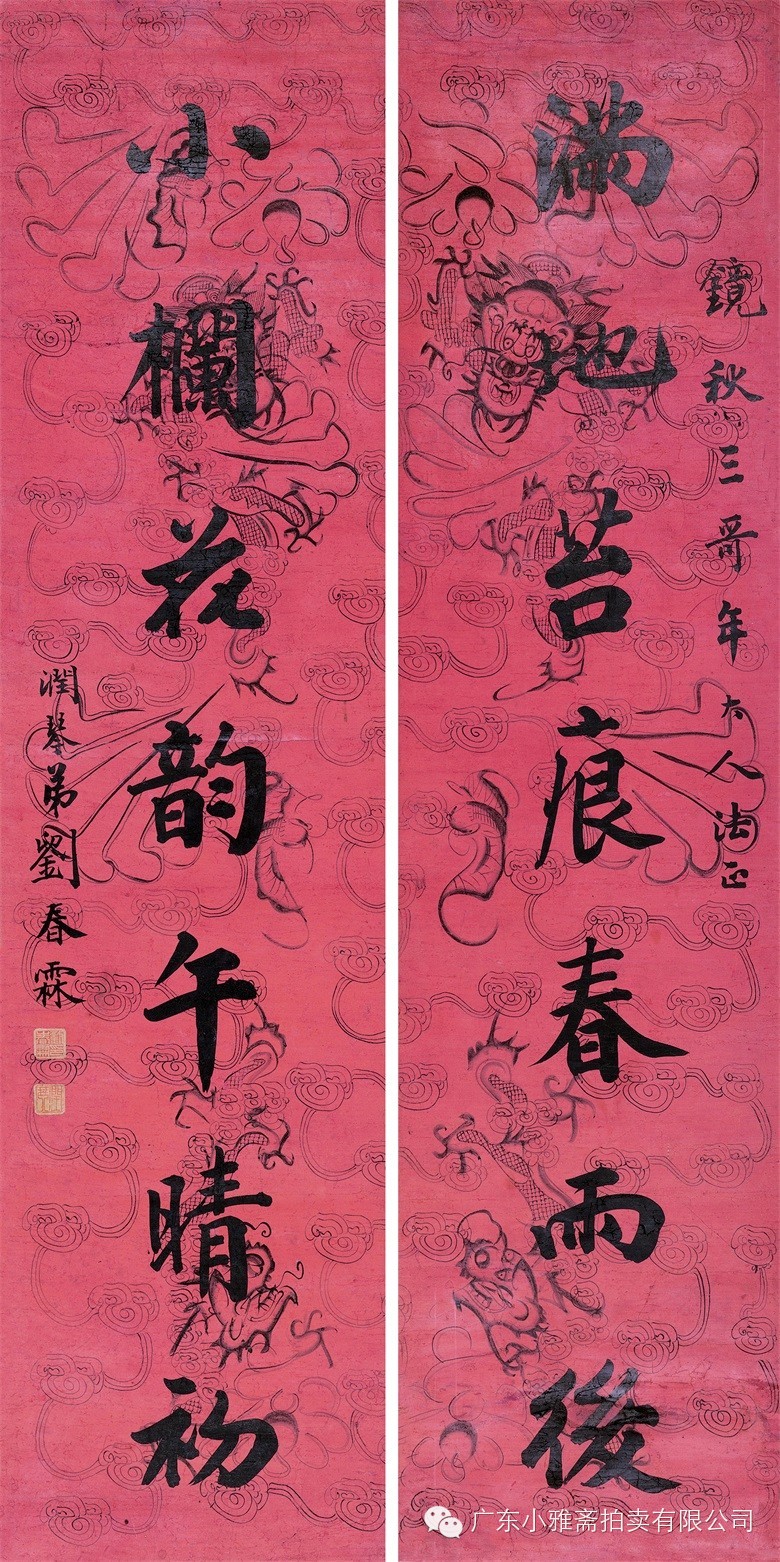 鏡秋三哥年大人法正
滿地苔痕春雨後
小欄花韵午晴初
潤琴弟劉春霖
广东小雅斋拍卖有限公司